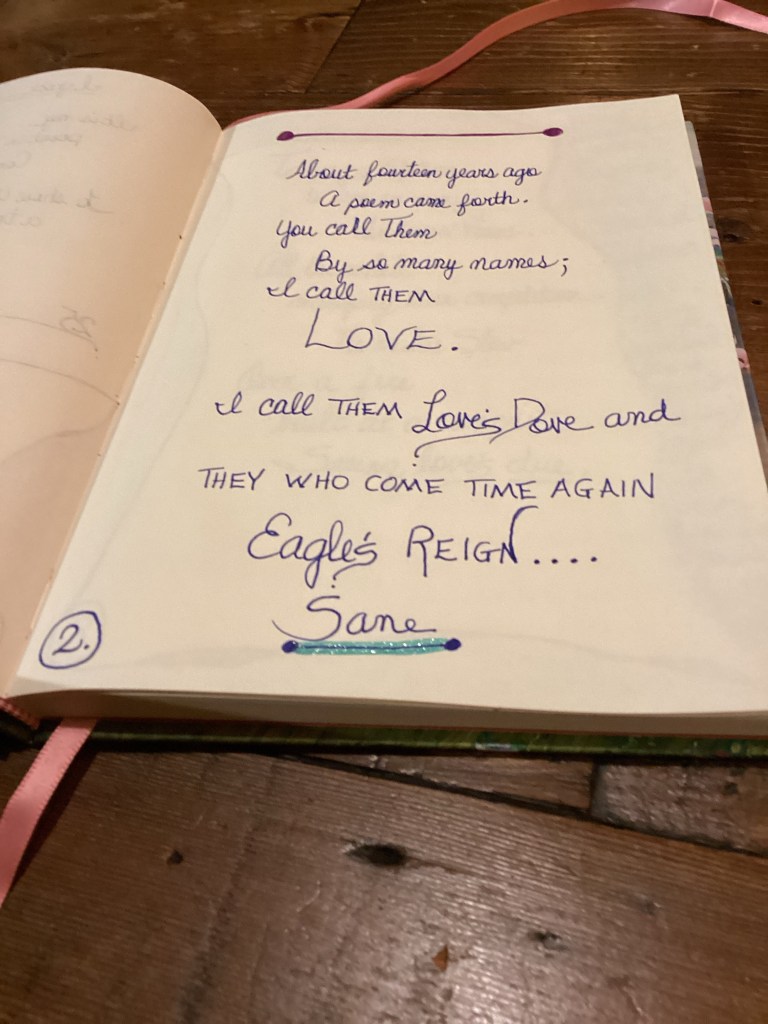 About fourteen years ago
A poem came forth.
You call Them
By so many names;
I call THEM
LOVE.
I call THEM Love's Dove and
THEY WHO COME TIME AGAIN
Eagle's REIGN....
Sane
2.